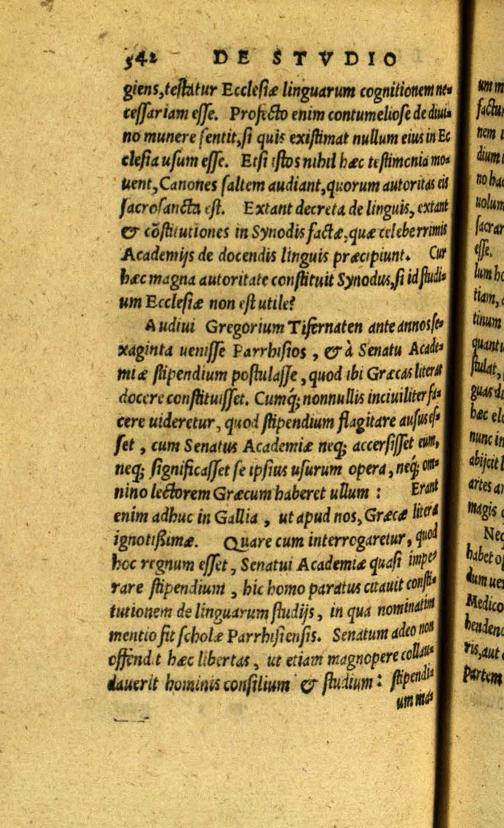 542 DE STVDIO
giens, testatur Ecclesiæ linguarum cognitionem ne-
cessariam esse. Profecto enim contumeliose de diui-
no munere sentit, si quis existimat nullum eius in Ec
clesia usum esse. Etsi istos nihil hæc testimonia mo-
uent, Canones saltem audiant, quorum autoritas eis
sacrosancta est. Extant decreta de linguis, extant
& cōstitutiones in Synodis factæ, quæ celeberrimis
Academijs de docendis linguis præcipiunt. Cur
hæc magna autoritate constituit Synodus, si id studi-
um Ecclesiæ non est utile?
Audiui Gregorium Tifernaten ante annos se-
xaginta uenisse Parrhisios, & à Senatu Acade-
miæ stipendium postulasse, quod ibi Græcas literas
docere constituisset. Cumq; nonnullis inciuiliter fa-
cere uideretur, quod stipendium flagitare ausus es-
set, cum Senatus Academiæ neq; accersisset eum,
neq; significasset se ipsius usurum opera, neq; om-
nino lectorem Græcum haberet ullum: Erant
enim adhuc in Gallia, ut apud nos, Græcæ literæ
ignotißimæ. Quare cum interrogaretur, quod
hoc regnum esset, Senatui Academiæ quasi impe-
rare stipendium, hic homo paratus citauit consti-
tutionem de linguarum studijs, in qua nominatim
mentio fit scholæ Parrhisiensis. Senatum adeo non
offendit hæc libertas, ut etiam magnopere collau-
dauerit hominis consilium & studium: stipendi-
um mas